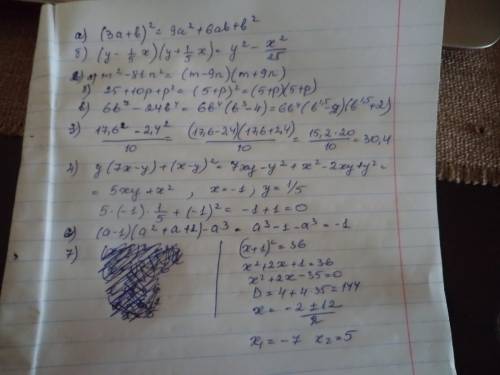 а) (3a+b)² = 9a² + 6ab + b²
б) (y - 1/5 x)(y + 1/5 x) = y² - x²/25
m² - 81n² = (m-9n)(m+9n)
б) 25 + 10p + p² = (5+p)² = (5+p)(5+p)
в) 6b⁷ - 24b⁴ = 6b⁴(b³-4) = 6b⁴(b^1,5 - 2)(b^1,5 + 2)
3) (17,6² - 2,4²)/10 = (17,6-2,4)(17,6+2,4)/10 = 15,2·20/10 = 30,4
4) y(7x-y) + (x-y)² = 7xy - y² + x² - 2xy + y² =
= 5xy + x² , x = -1; y = 1/5
5·(-1)·1/5 + (-1)² = -1 + 1 = 0
(a-1)(a²+a+1) - a³ = a³ - 1 - a³ = -1
7)
(x+1)² = 36
x² + 2x + 1 = 36
x² + 2x - 35 = 0
D = 4 + 4·35 = 144
x = (-2 ± 12)/2
x₁ = -7 x₂ = 5